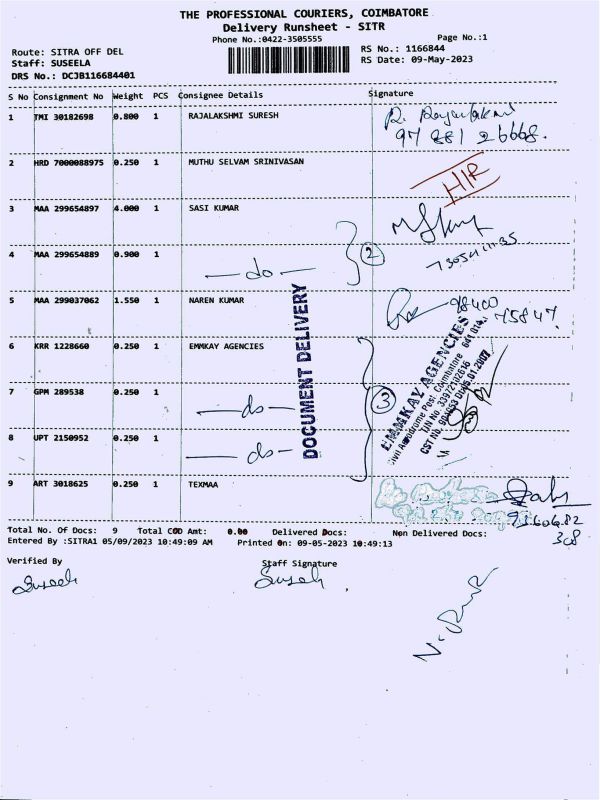 THE PROFESSIONAL COURIERS, COIMBATORE
Delivery Runsheet - SITR
Phone No.:0422-3505555
Page No.:1
Route: SITRA OFF DEL
RS No.: 1166844
Staff: SUSEELA
RS Date: 09-May-2023
DRS No.: DCJB116684401
S No Consignment No Weight PCS Consignee Details Signature
1 TMI 30182698 0.800 1 RAJALAKSHMI SURESH
R. Rajalakshmi
97 881 26668.
2 HRD 7000088975 0.250 1 MUTHU SELVAM SRINIVASAN
HIR
3 MAA 299654897 4.000 1 SASI KUMAR
4 MAA 299654889 0.900 1
—do— 2
5 MAA 299037062 1.550 1 NAREN KUMAR
98400
75847
6 KRR 1228660 0.250 1 EMMKAY AGENCIES
7 GPM 289538 0.250 1
—do— 3
8 UPT 2150952 0.250 1
—do—
DOCUMENT DELIVERY
EMMKAY AGENCIES
Civil Aerodrome Post, Coimbatore 641 014.
TIN No. 33972102616
9 ART 3018625 0.250 1 TEXMAA
9360682
308
Total No. Of Docs: 9 Total COD Amt: 0.00 Delivered Docs: Non Delivered Docs:
Entered By :SITRA1 05/09/2023 10:49:09 AM Printed On: 09-05-2023 10:49:13
Verified By Staff Signature
Suseela